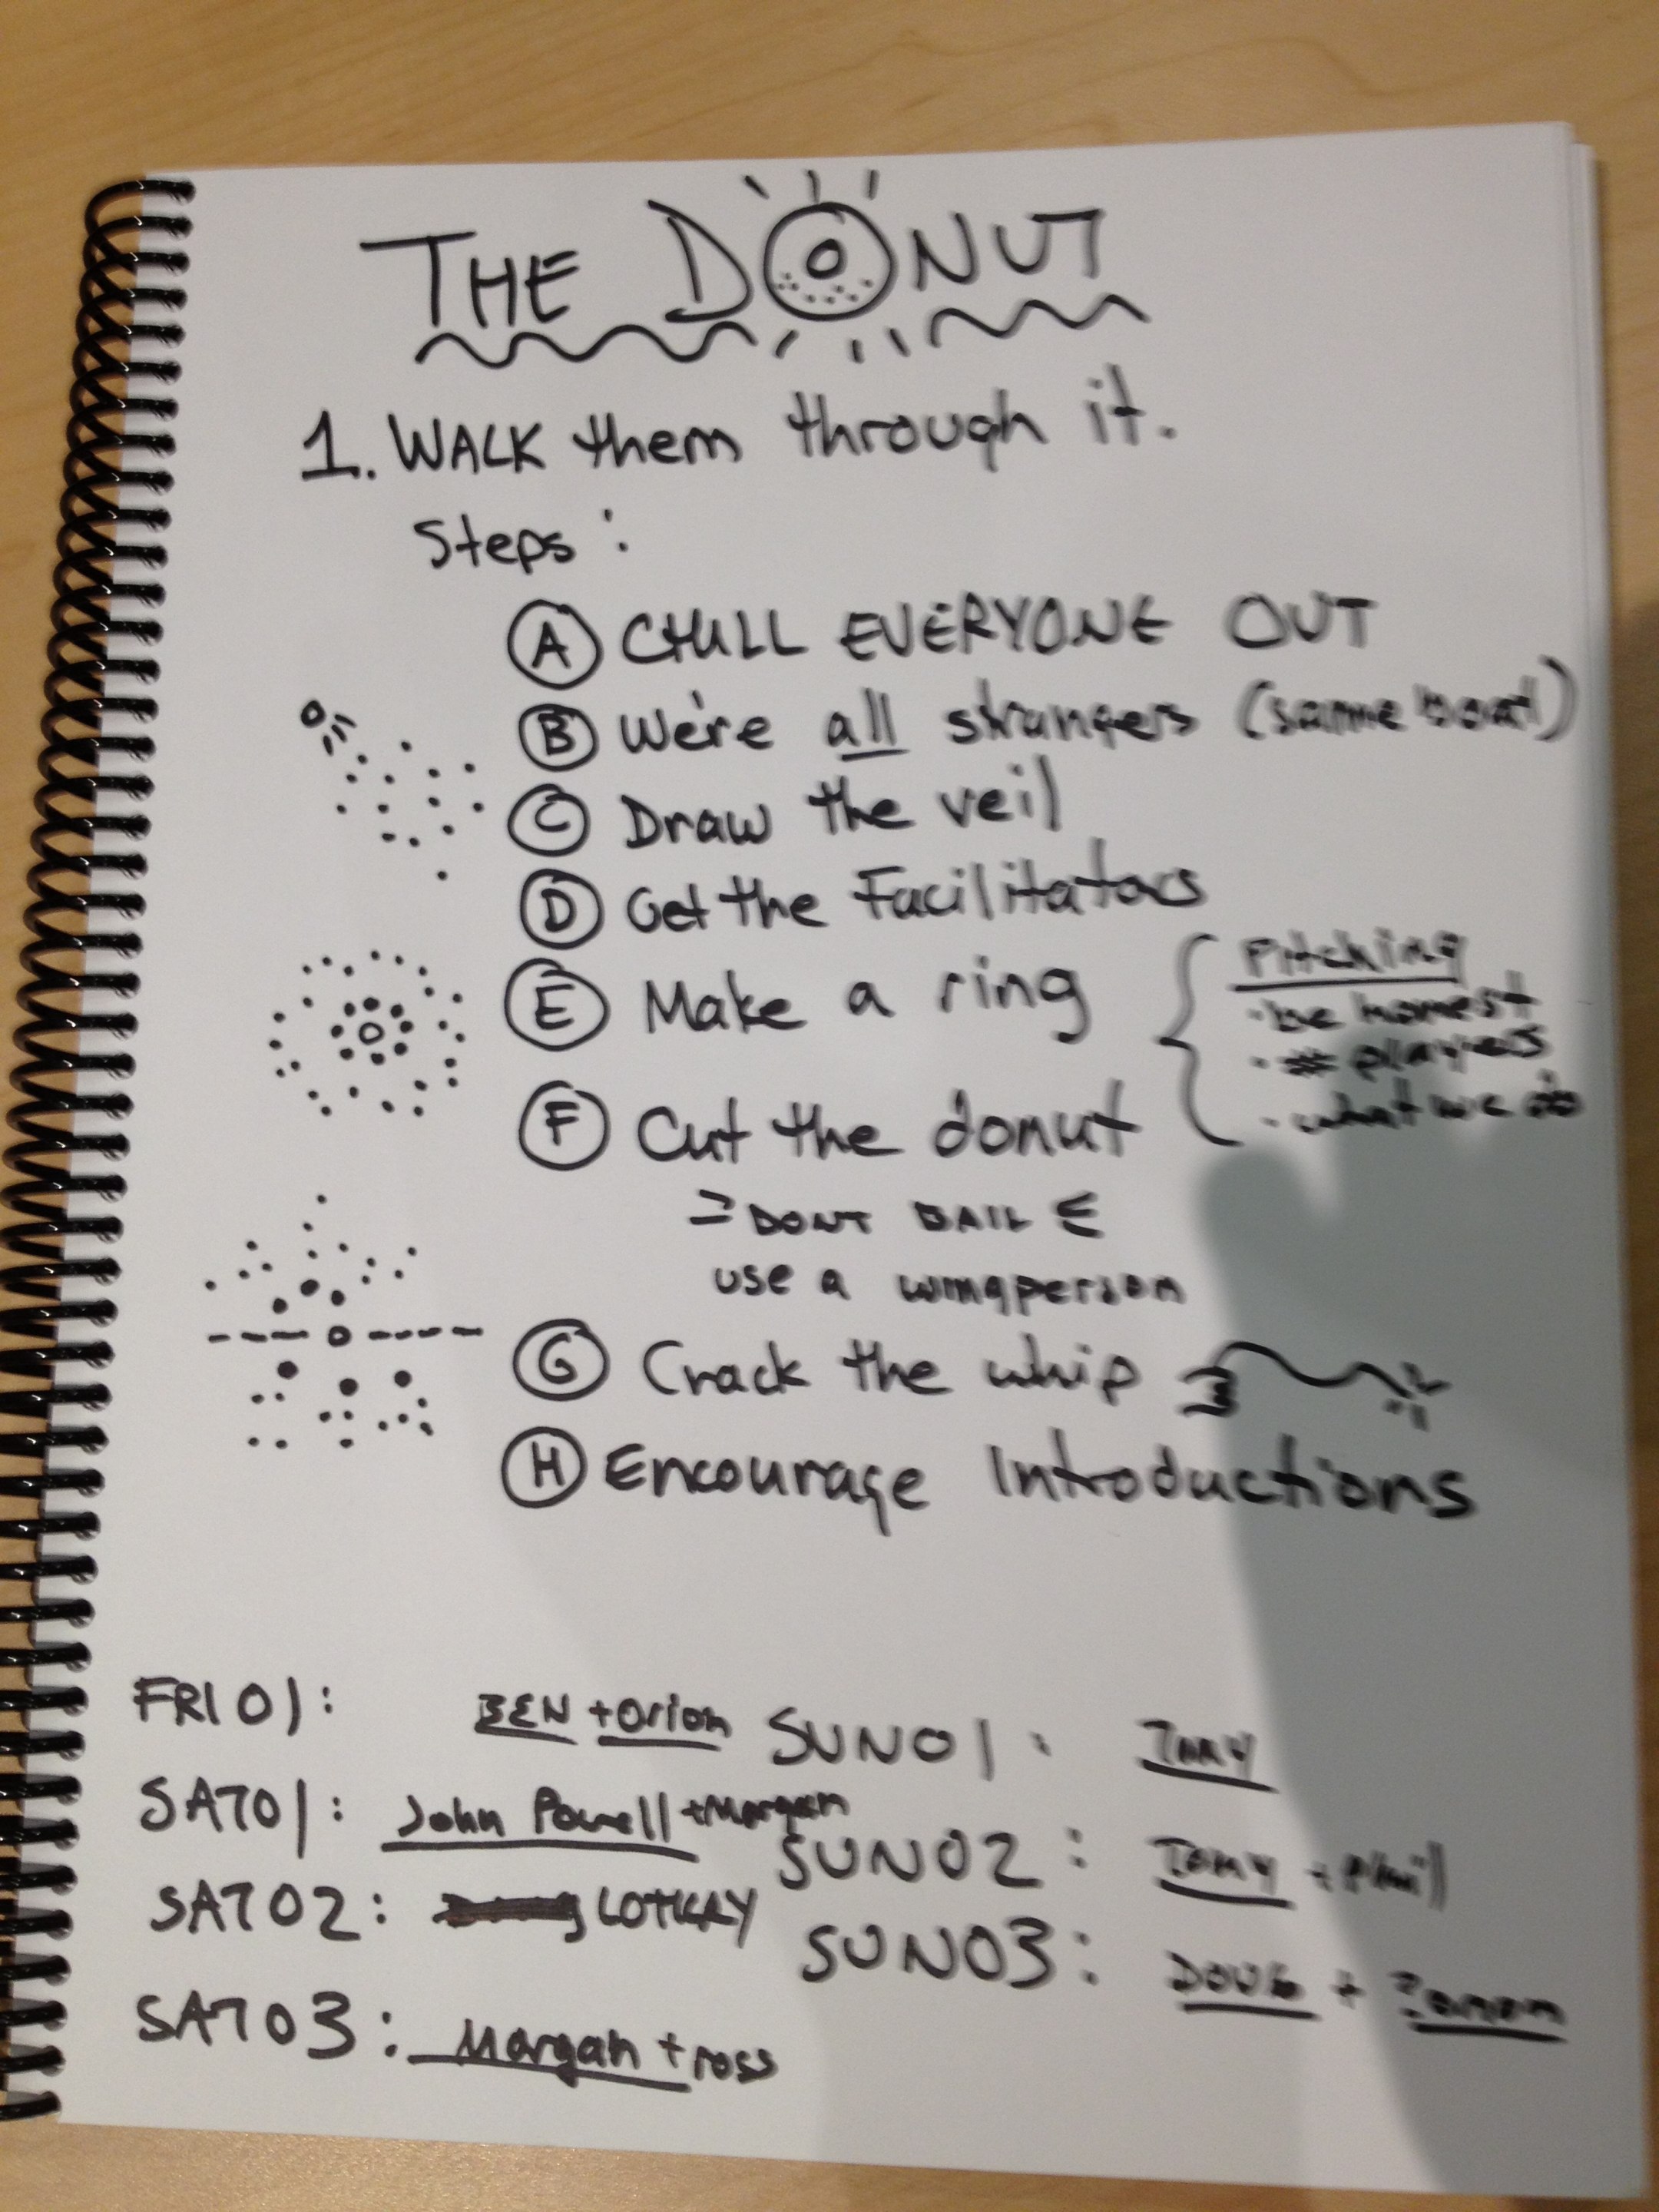 THE DONUT
1. WALK them through it.
Steps:
A CHILL EVERYONE OUT
B We're all strangers (same boat)
C Draw the veil
D Get the Facilitators
E Make a ring
Pitching
• be honest
• # players
• what we do
F Cut the donut
DONT BAIL
use a wingperson
G Crack the whip
H Encourage Introductions
FRI 01: BEN + Orion
SAT01: John Powell + Morgan
SAT02: LOTKERY
SAT03: Morgan + ross
SUN01:
SUN02: + Phil
SUN03: DOUG +